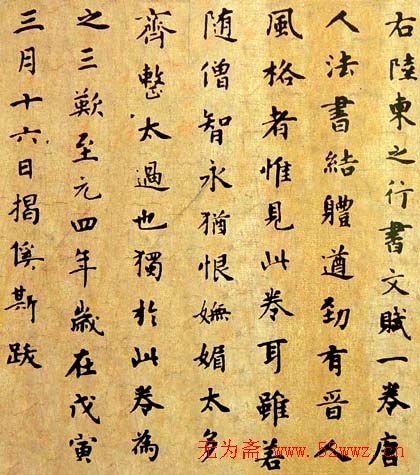 右陸東之行書文賦一卷唐
人法書結體遒勁有晉人
風格者惟見此卷耳雖善
隨僧智永猶恨嫵媚太多
齊整太過也獨於此卷為
之三歎至元四年歲在戊寅
三月十六日揭傒斯跋
无为斋 www.52wwz.cn